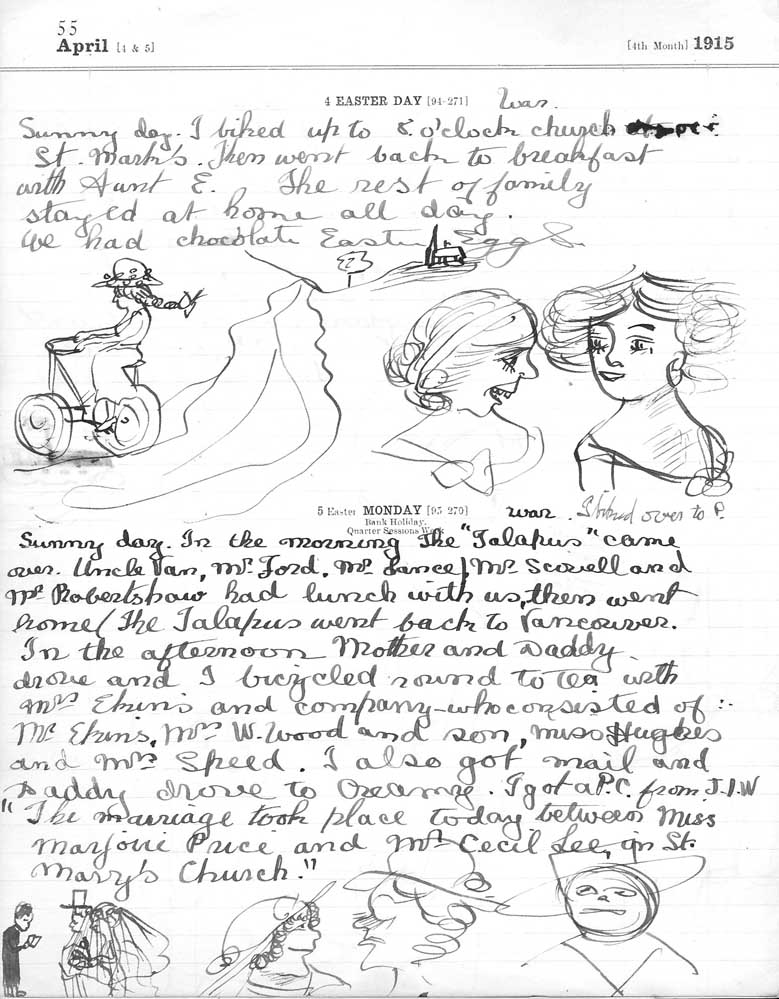 55
April [4 & 5]
[4th Month] 1915
4 EASTER DAY [94-271] War.
Sunny day. I biked up to 8 o'clock church at
St. Mark's. Then went back to breakfast
with Aunt E. The rest of family
stayed at home all day.
We had chocolate Easter Eggs.
5 Easter MONDAY [95-270] war. I biked over to P.
Bank Holiday.
Quarter Sessions Week
Sunny day. In the morning The "Talapus" came
over. Uncle Van, Mr Ford, Mr Lance, Mr Scovell and
Mr Robertshaw had lunch with us, then went
home/ The Talapus went back to Vancouver.
In the afternoon Mother and Daddy
drove and I bicycled round to tea with
Mrs Ekins and company - who consisted of :-
Mr Ekins, Mrs W. Wood and son, Miss Hughes
and Mrs Speed. I also got mail and
Daddy drove to Creamry. I got a P.C. from J.I.W
"The marriage took place today between Miss
Marjorie Price and Mr Cecil Lee, in St.
Mary's Church."